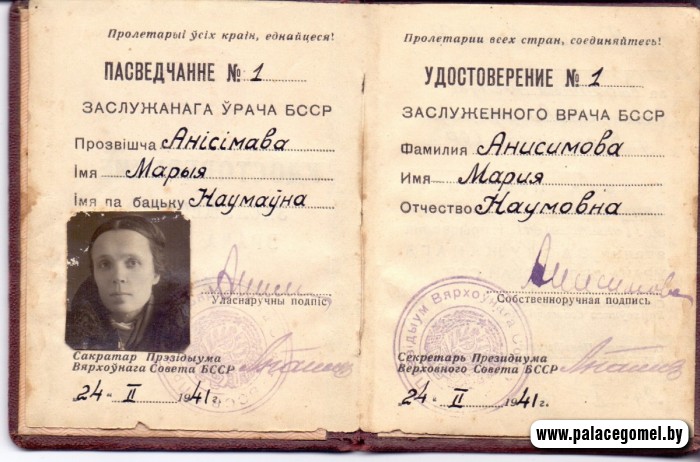 Пролетарыі ўсіх краін, еднайцеся!
ПАСВЕДЧАННЕ № 1
ЗАСЛУЖАНАГА ЎРАЧА БССР
Прозвішча Анісімава
Імя Марыя
Імя па бацьку Навумаўна
Уласнаручны подпіс
Сакратар Прэзідыума
Вярхоўнага Совета БССР
24 II 1941 г.
Пролетарии всех стран, соединяйтесь!
УДОСТОВЕРЕНИЕ № 1
ЗАСЛУЖЕННОГО ВРАЧА БССР
Фамилия Анисимова
Имя Мария
Отчество Наумовна
Анисимова
Собственноручная подпись
Секретарь Президиума
Верховного Совета БССР
24 II 1941 г.
www.palacegomel.by